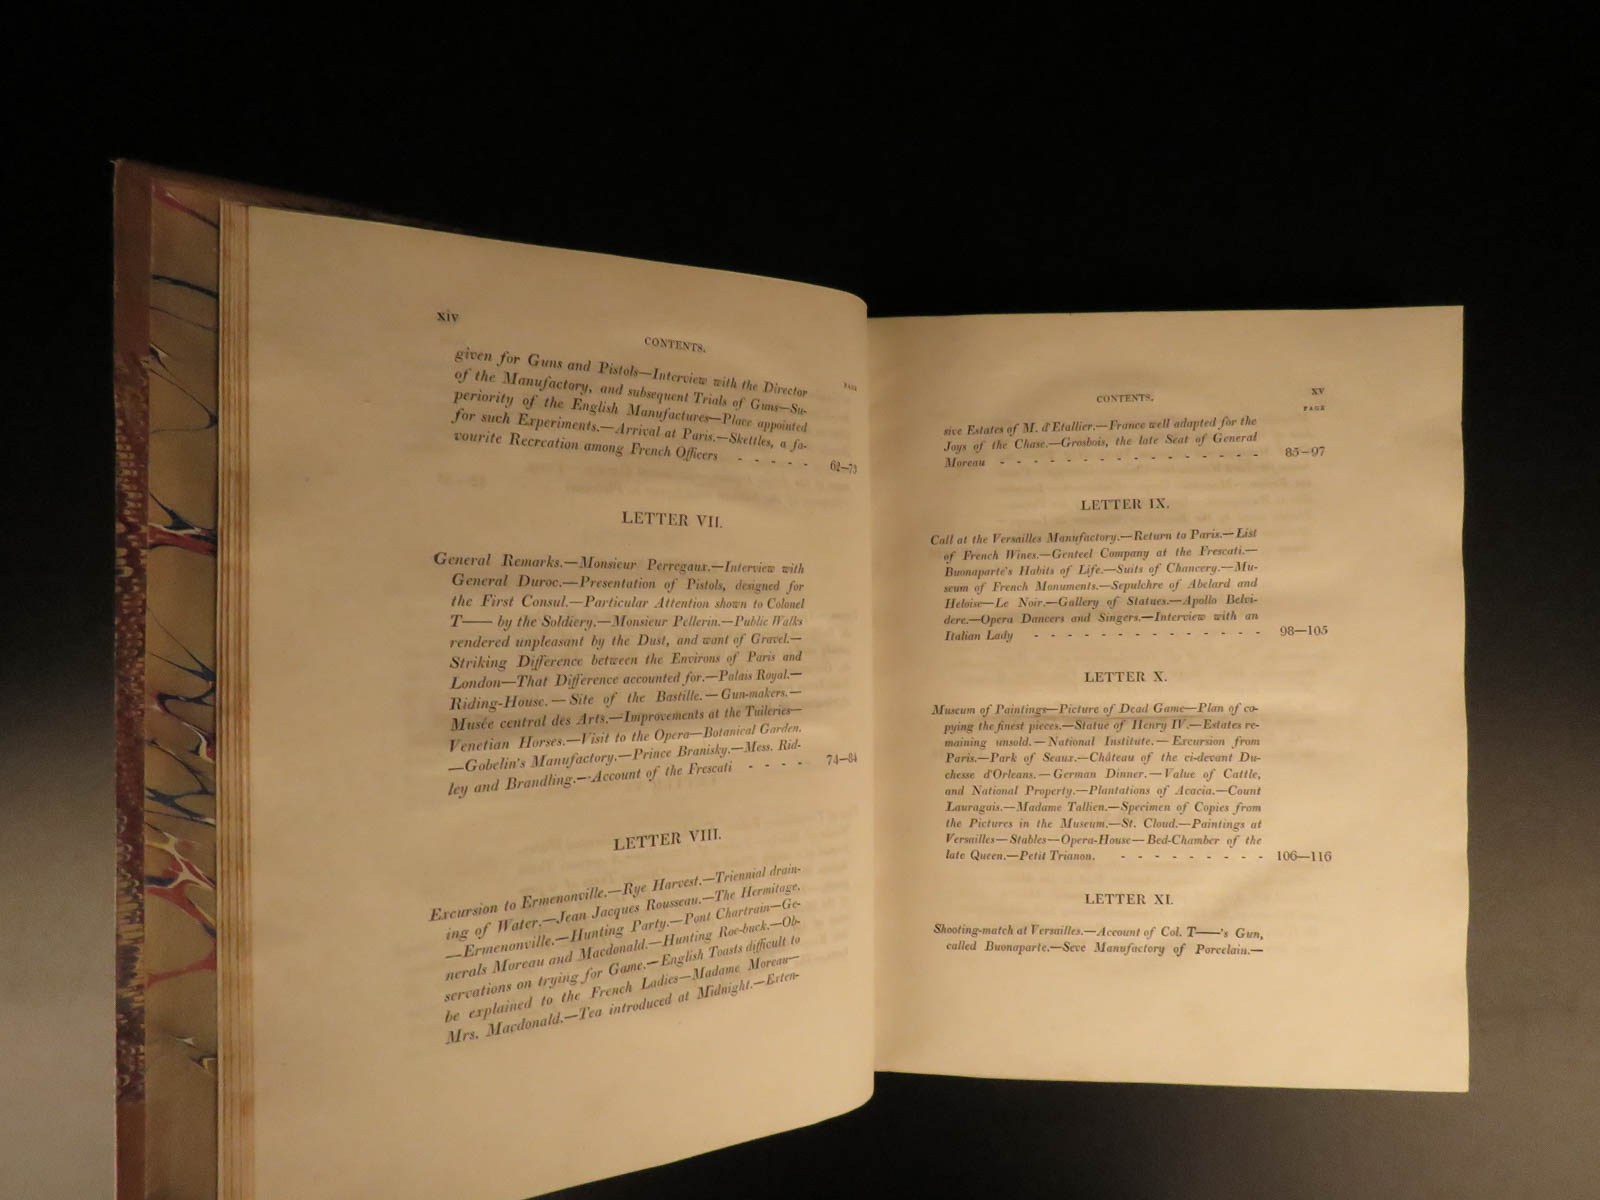 xiv
CONTENTS.
PAGE
given for Guns and Pistols—Interview with the Director
of the Manufactory, and subsequent Trials of Guns—Su-
periority of the English Manufactures—Place appointed
for such Experiments.—Arrival at Paris.—Skettles, a fa-
vourite Recreation among French Officers - - - - - 62—73
LETTER VII.
General Remarks.—Monsieur Perregaux.—Interview with
General Duroc.—Presentation of Pistols, designed for
the First Consul.—Particular Attention shown to Colonel
T—— by the Soldiery.—Monsieur Pellerin.—Public Walks
rendered unpleasant by the Dust, and want of Gravel.—
Striking Difference between the Environs of Paris and
London—That Difference accounted for.—Palais Royal.—
Riding-House.—Site of the Bastille.—Gun-makers.—
Musée central des Arts.—Improvements at the Tuileries—
Venetian Horses.—Visit to the Opera—Botanical Garden.
—Gobelin's Manufactory.—Prince Branisky.—Mess. Rid-
ley and Brandling.—Account of the Frescati - - - - 74—84
LETTER VIII.
Excursion to Ermenonville.—Rye Harvest.—Triennial drain-
ing of Water.—Jean Jacques Rousseau.—The Hermitage.
—Ermenonville.—Hunting Party.—Pont Chartrain—Ge-
nerals Moreau and Macdonald.—Hunting Roe-buck.—Ob-
servations on trying for Game.—English Toasts difficult to
be explained to the French Ladies—Madame Moreau—
Mrs. Macdonald.—Tea introduced at Midnight.—Exten-
CONTENTS.
xv
PAGE
sive Estates of M. d'Etallier.—France well adapted for the
Joys of the Chase.—Grosbois, the late Seat of General
Moreau - - - - - - - - - - - - - - - - 85—97
LETTER IX.
Call at the Versailles Manufactory.—Return to Paris.—List
of French Wines.—Genteel Company at the Frescati.—
Buonaparte's Habits of Life.—Suits of Chancery.—Mu-
seum of French Monuments.—Sepulchre of Abelard and
Heloise—Le Noir.—Gallery of Statues.—Apollo Belvi-
dere.—Opera Dancers and Singers.—Interview with an
Italian Lady - - - - - - - - - - - - - - 98—105
LETTER X.
Museum of Paintings—Picture of Dead Game—Plan of co-
pying the finest pieces.—Statue of Henry IV.—Estates re-
maining unsold.—National Institute.—Excursion from
Paris.—Park of Seaux.—Château of the ci-devant Du-
chesse d'Orleans.—German Dinner.—Value of Cattle,
and National Property.—Plantations of Acacia.—Count
Lauraguis.—Madame Tallien.—Specimen of Copies from
the Pictures in the Museum.—St. Cloud.—Paintings at
Versailles—Stables—Opera-House—Bed-Chamber of the
late Queen.—Petit Trianon. - - - - - - - - - 106—116
LETTER XI.
Shooting-match at Versailles.—Account of Col. T——'s Gun,
called Buonaparte.—Seve Manufactory of Porcelain.—